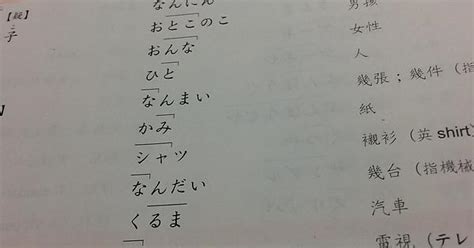 【段】
子
なんにん
おとこのこ 男孩
おんな 女性
ひと 人
なんまい 幾張；幾件（指
かみ 紙
シャツ 襯衫（英 shirt
なんだい 幾台（指機械
くるま 汽車
電視（テレ